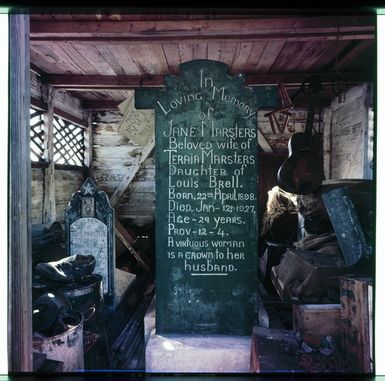 In
Loving Memory
of
Jane Marsters
Beloved wife of
Terain Marsters
Daughter of
Louis Brell.
Born, 22nd April, 1898.
Died, Jan-12th 1927,
Age-29 years.
Prov-12-4.
A virtuous woman
is a crown to her
husband.